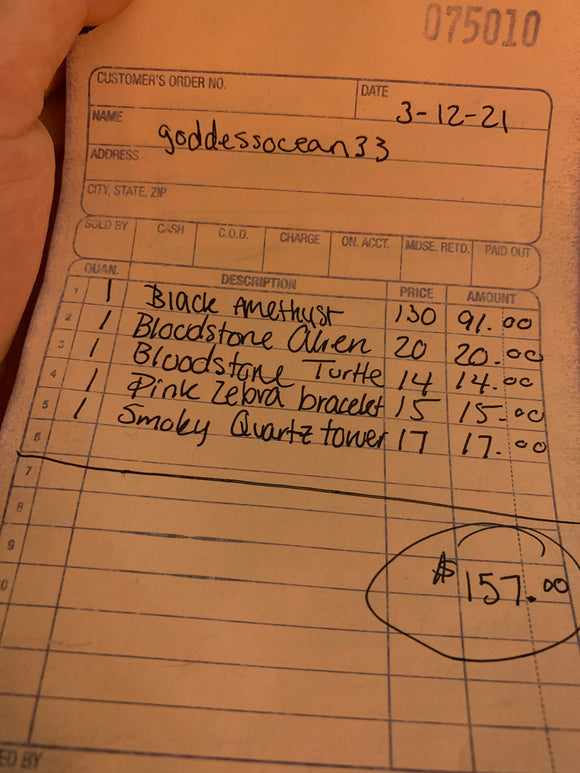 075010
CUSTOMER'S ORDER NO. DATE 3-12-21
NAME goddessocean33
ADDRESS
CITY, STATE, ZIP
SOLD BY CASH C.O.D. CHARGE ON. ACCT. MDSE. RETD. PAID OUT
QUAN. DESCRIPTION PRICE AMOUNT
1 1 Black Amethyst 130 91.00
2 1 Bloodstone Alien 20 20.00
3 1 Bloodstone Turtle 14 14.00
4 1 Pink Zebra bracelet 15 15.00
5 1 Smoky Quartz tower 17 17.00
6
7
8
9
$157.00